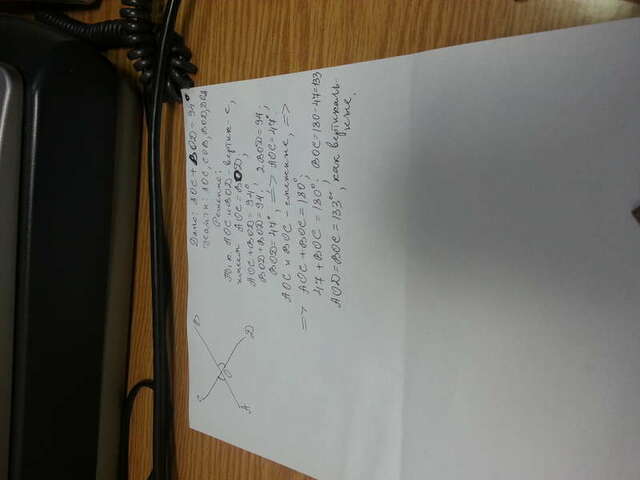 Дано: AOC + BOD = 94°
Найти: AOC, COB, BOD, DOA
Решение:
Т.к AOC и BOD вертик-е,
AOC = BOD,
AOC + BOD = 94°
BOD + BOD = 94°, 2BOD = 94°,
BOD = 47°, => AOC = 47°,
AOC и BOC - смежные, =>
=> AOC + BOC = 180°;
47 + BOC = 180°, BOC = 180-47=133
AOD = BOC = 133°, как вертикаль-
ные.
C
B
D
A